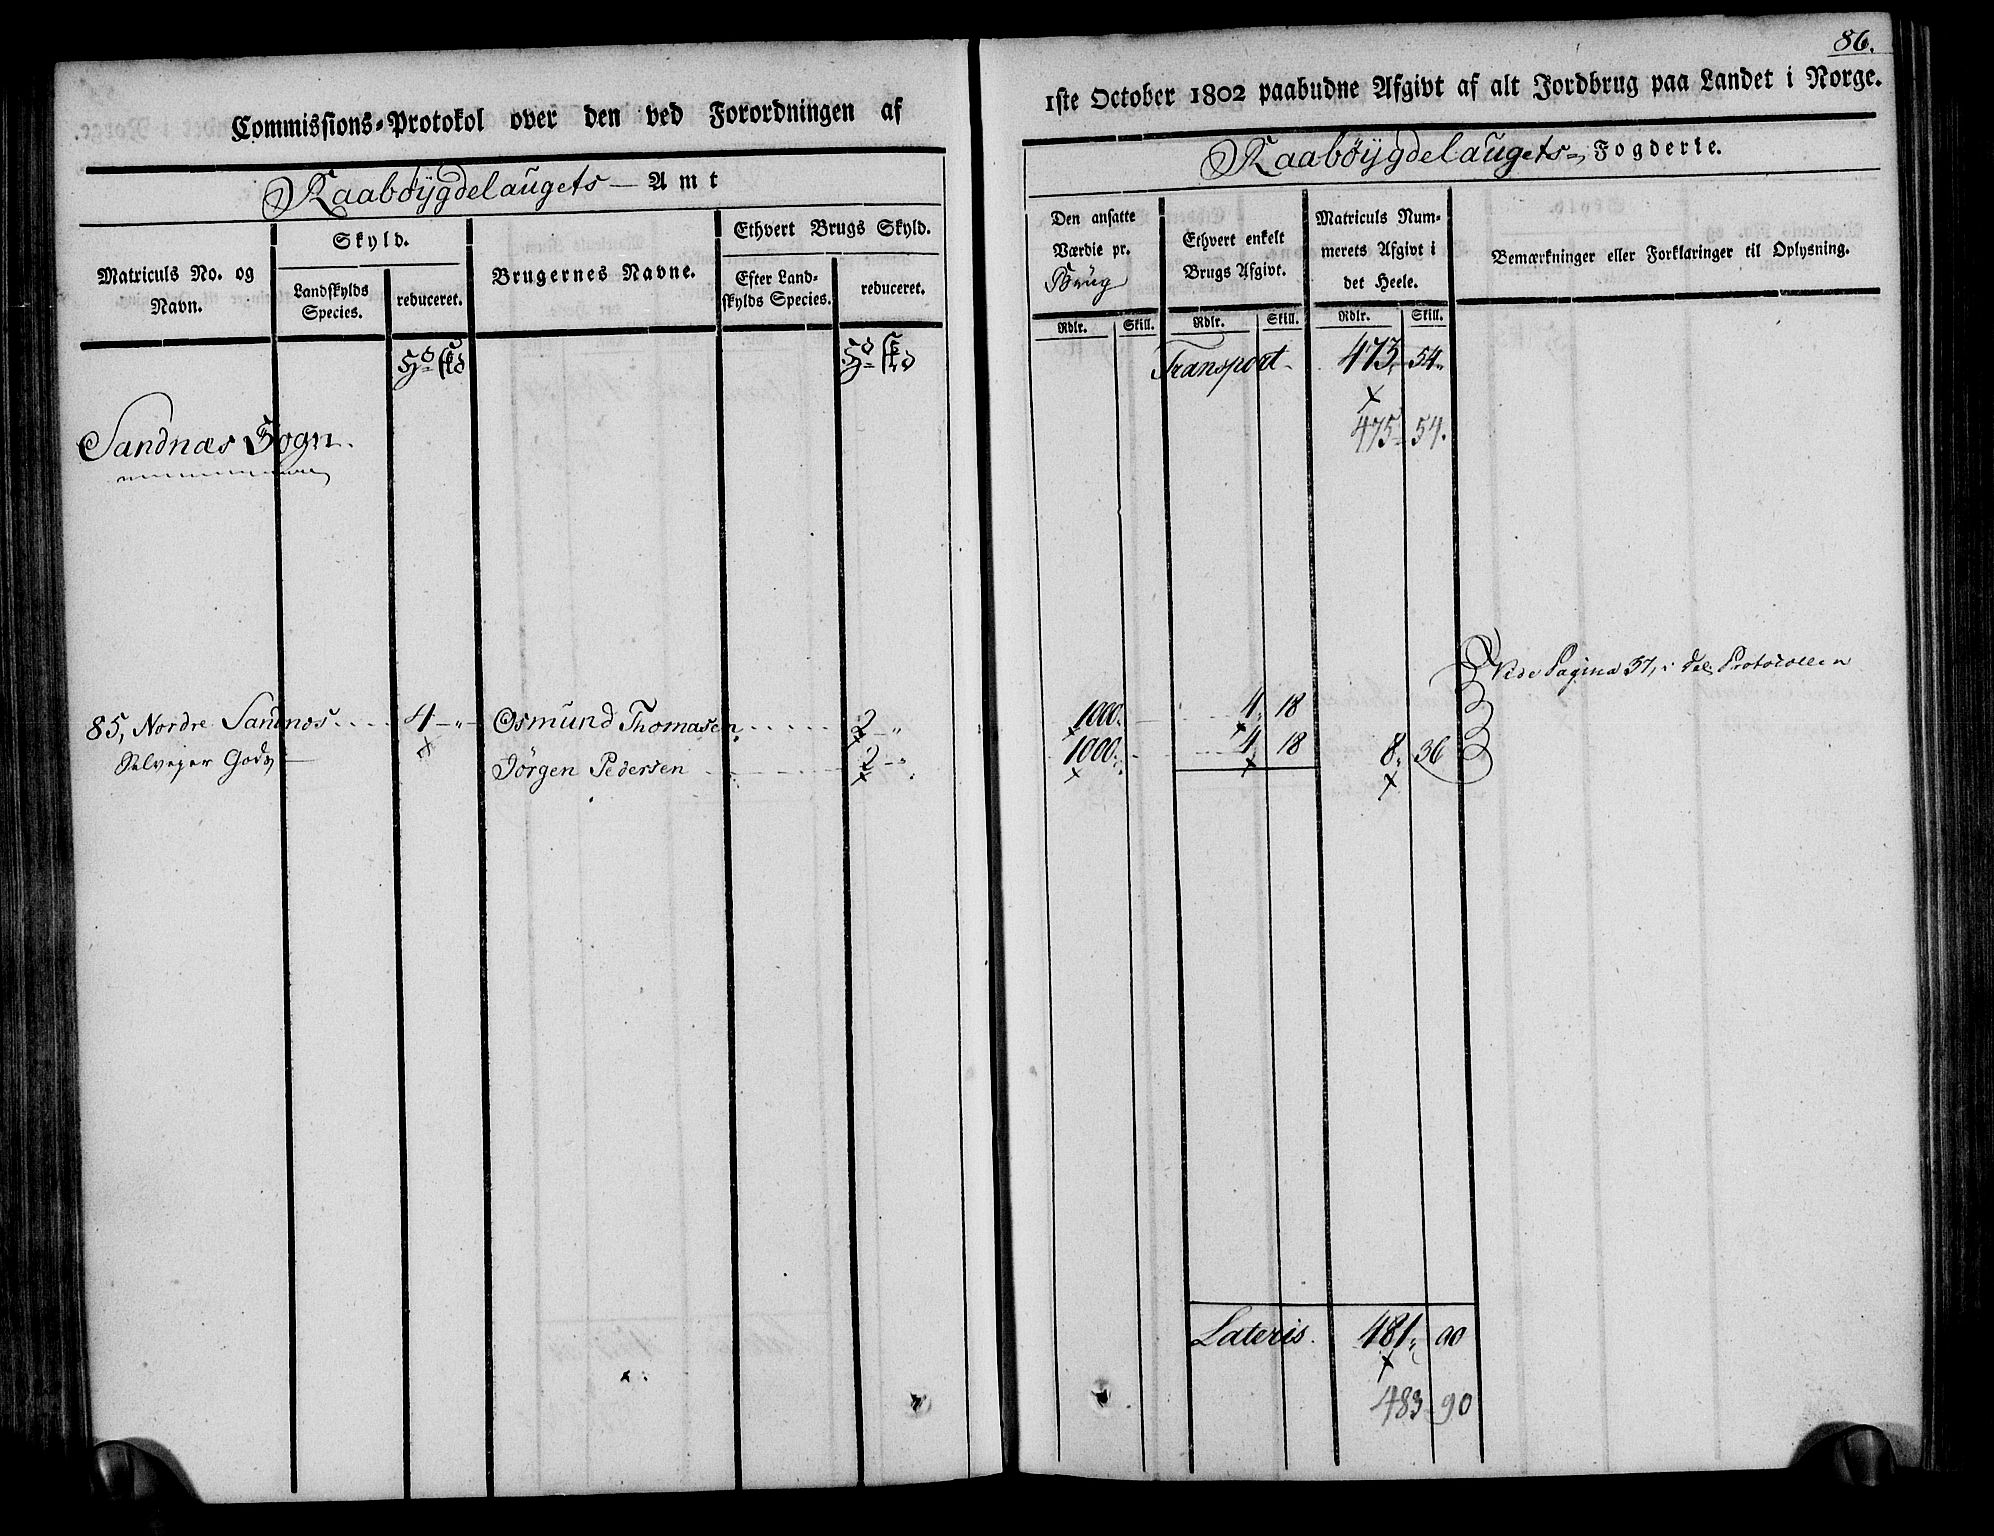 86.
Commissions-Protokol over den ved Forordningen af
1ste October 1802 paabudne Afgivt af alt Jordbrug paa Landet i Norge.
Raabøygdelaugets — Amt
Raabøygdelaugets Fogderie.
Matriculs No. og
Navn.
Skyld.
Landskylds
Species.
reduceret.
Brugernes Navne.
Ethvert Brugs Skyld.
Efter Land-
skylds Species.
reduceret.
Den ansatte
Værdie pr.
Brug
Rdlr. Skill.
Ethvert enkelt
Brugs Afgivt.
Rdlr. Skill.
Matriculs Num-
merets Afgivt i
det Heele.
Rdlr. Skill.
Bemærkninger eller Forklaringer til Oplysning.
Transport 473 54
475 54.
Sandnæs Sogn.
Vide Pagina 37, i Protocollen
85, Nordre Sandnes 4 Osmund Thomasen 2 1000 4 18
Selveyer Gods Jörgen Pedersen 2 1000 4 18 8 36
Lateris. 481 90
483 90